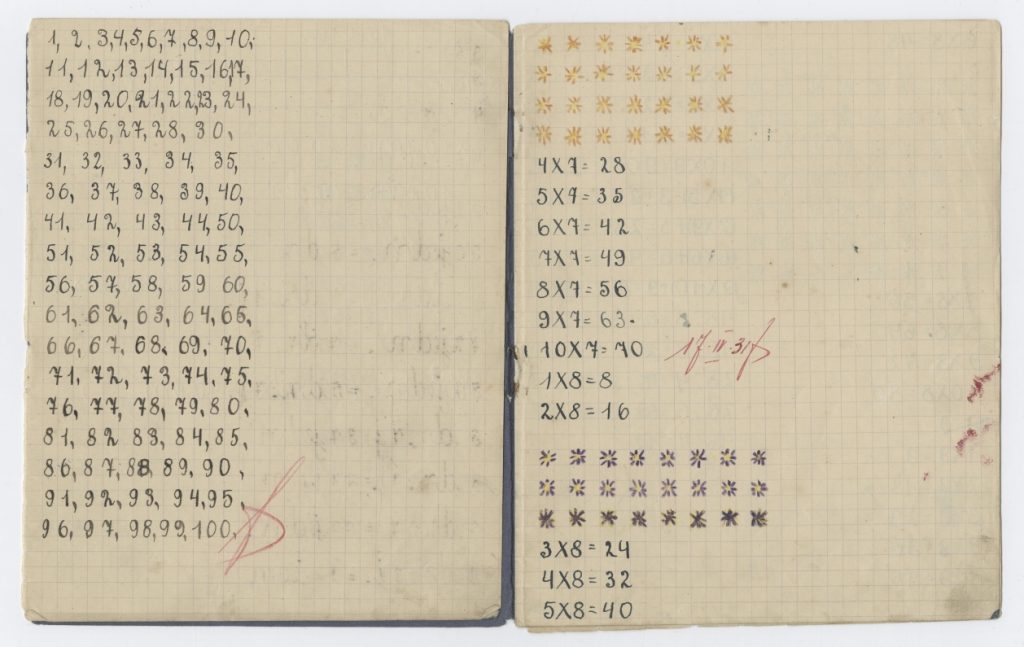 1, 2. 3,4,5,6,7,8,9,10,
11,12,13,14,15,16,17,
18,19,20,21,22,23,24,
25,26,27,28, 30,
31, 32, 33, 34, 35,
36, 37, 38, 39, 40,
41, 42, 43, 44,50,
51, 52, 53, 54,55,
56, 57, 58, 59 60,
61, 62, 63, 64,65,
66,67. 68. 69, 70,
71, 72, 73,74,75,
76, 77, 78, 79,80,
81, 82 83, 84,85,
86,87,88 89,90,
91,92,93, 94,95,
96, 97, 98,99,100,
4X7=28
5X7=35
6X7=42
7X7=49
8X7=56
9X7=63.
10X7=70 17.II.31
1X8=8
2X8=16
3X8=24
4X8=32
5X8=40